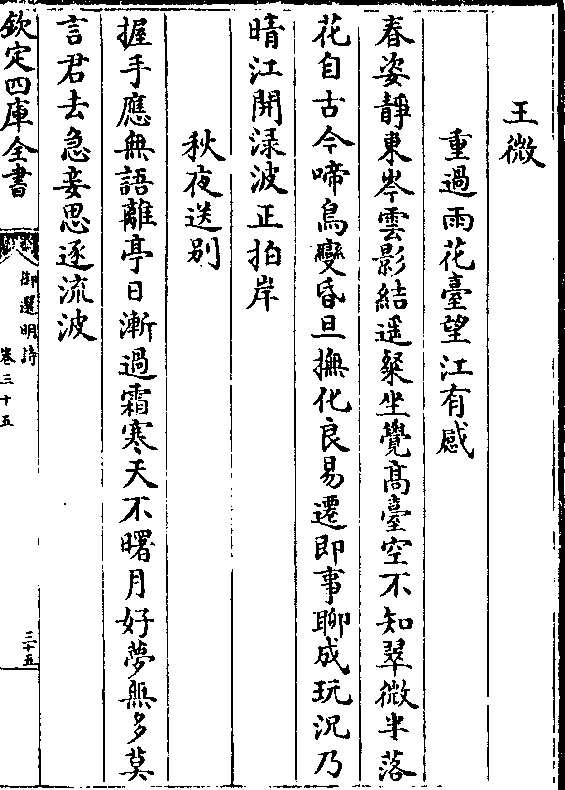 王微
重過雨花臺望江有感
春姿靜東岑雲影結遥粲坐覺髙臺空不知翠微半落
花自古今啼鳥變昏旦撫化良易遷即事聊成玩況乃
晴江開渌波正拍岸
秋夜送别
握手應無語離亭日漸過霜寒天不曙月好夢無多莫
言君去急妾思逐流波
欽定四庫全書
御選明詩
卷三十五
三十五